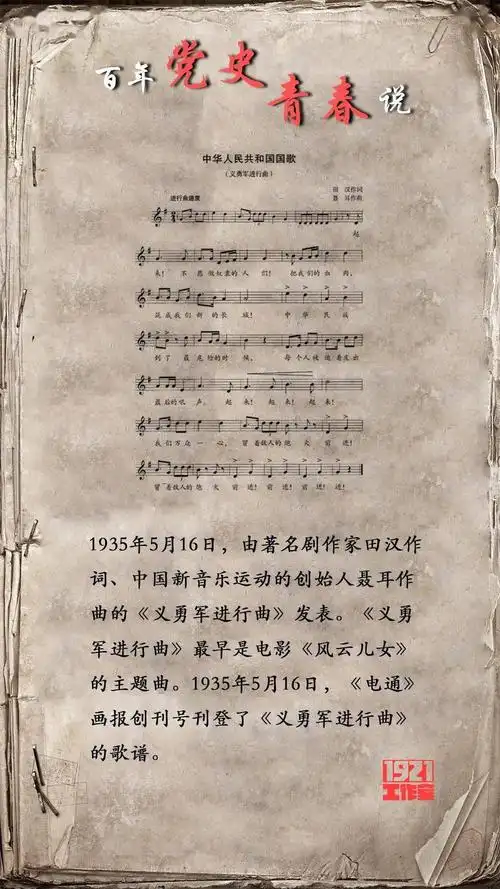 百年党史青春说
中华人民共和国国歌
（义勇军进行曲）
进行曲速度
田 汉作词
聂 耳作曲
起
来！不愿做奴隶的人们！把我们的血肉，
筑成我们新的长城！中华民族
到了最危险的时候，每个人被迫着发出
最后的吼声。起来！起来！起来！
我们万众一心，冒着敌人的炮火前进！
冒着敌人的炮火前进！前进！前进！进！
1935年5月16日，由著名剧作家田汉作
词、中国新音乐运动的创始人聂耳作
曲的《义勇军进行曲》发表。《义勇
军进行曲》最早是电影《风云儿女》
的主题曲。1935年5月16日，《电通》
画报创刊号刊登了《义勇军进行曲》
的歌谱。
1921
工作室